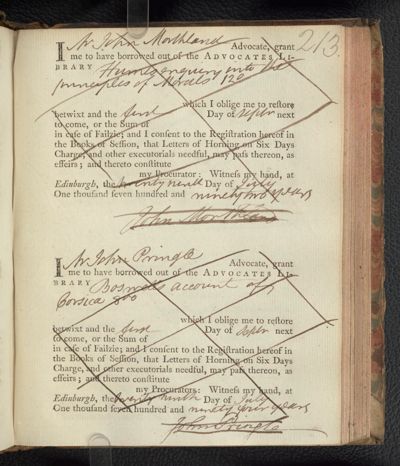 213
I Mr John Morthland Advocate, grant
me to have borrowed out of the ADVOCATES LI-
BRARY Humes enquiry into the
principles of Morals 12o
which I oblige me to restore
betwixt and the first Day of Septr next
to come, or the Sum of
in case of Failzie; and I consent to the Registration hereof in
the Books of Session, that Letters of Horning on Six Days
Charge, and other executorials needful, may pass thereon, as
effeirs; and thereto constitute
my Procurator: Witness my hand, at
Edinburgh, the twenty ninth Day of July
One thousand seven hundred and ninety two years
John Morthland
I Mr John Pringle Advocate, grant
me to have borrowed out of the ADVOCATES LI-
BRARY Boswells account of
Corsica 8vo
which I oblige me to restore
betwixt and the first Day of Septr next
to come, or the Sum of
in case of Failzie; and I consent to the Registration hereof in
the Books of Session, that Letters of Horning on Six Days
Charge, and other executorials needful, may pass thereon, as
effeirs; and thereto constitute
my Procurators: Witness my hand, at
Edinburgh, the twenty ninth Day of July
One thousand seven hundred and ninety two years
John Pringle